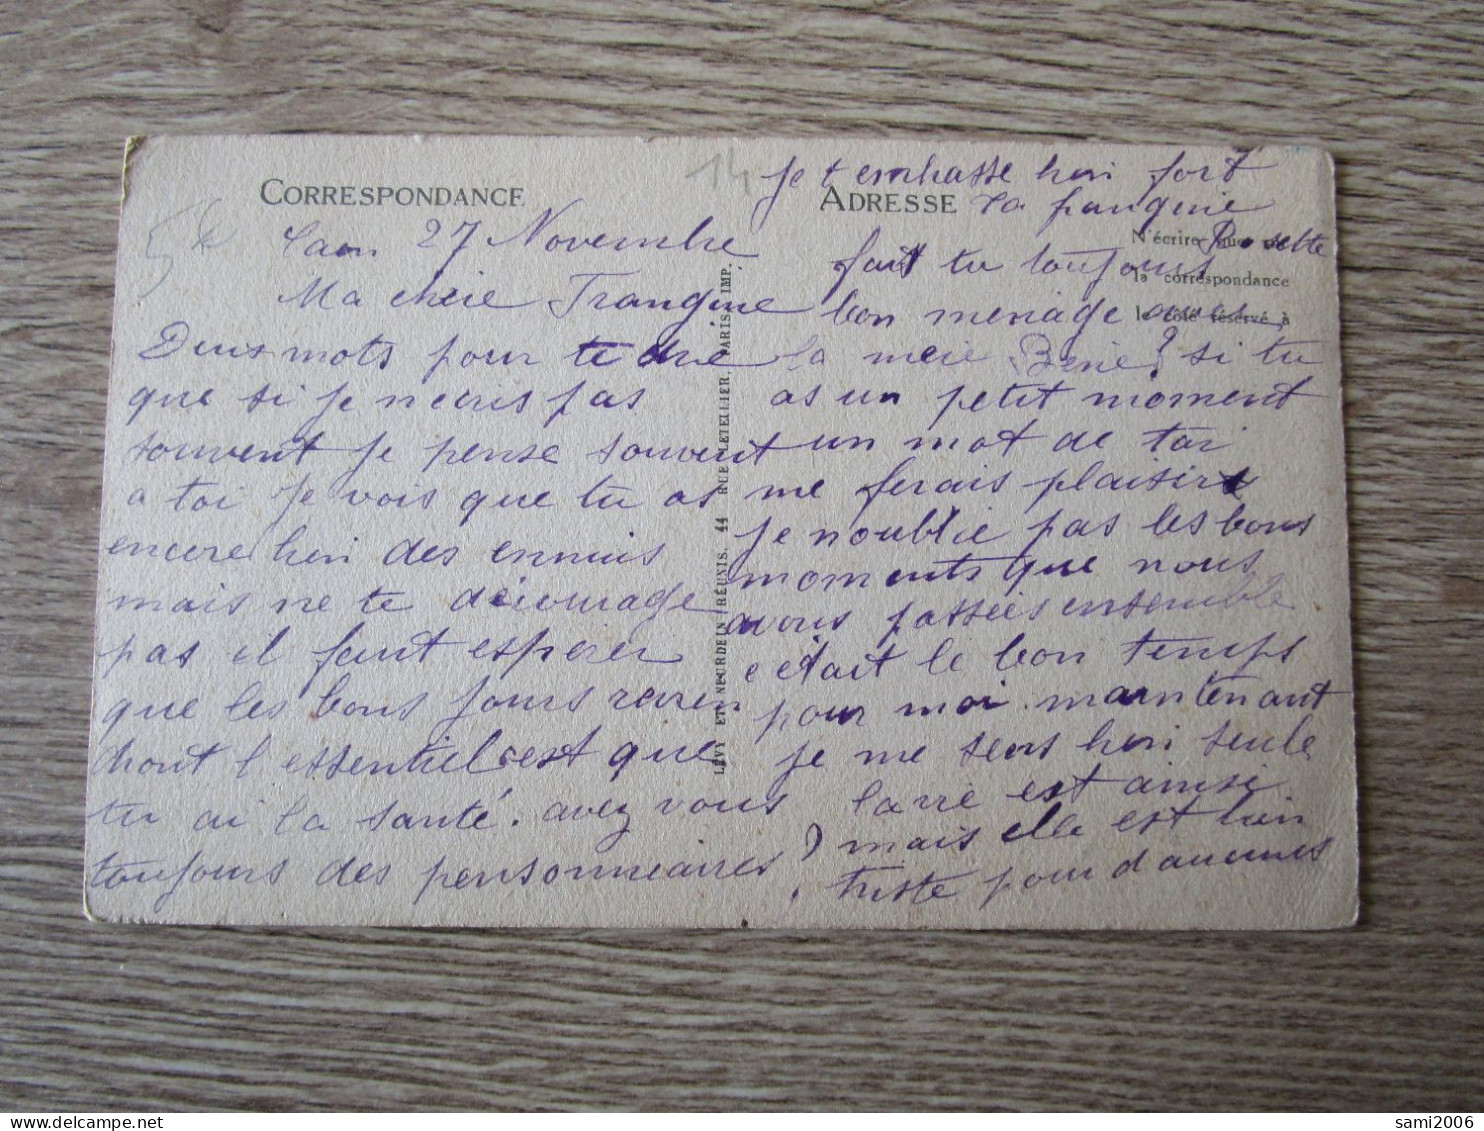 CORRESPONDANCE
14
Laon 27 Novembre
Ma cheie Frangine
Deux mots pour te dire
que si je n ecris pas
souvent je pense souvent
a toi je vois que tu as
encore bien des ennuis
mais ne te décourage
pas il faut esperer
que les bons jours reviens
dront l essentiel c est que
tu ai la santé. avez vous
toujours des pensonneaires ?
LÉVY ET NEURDEIN RÉUNIS. 44 RUE LETELLIER, PARIS. IMP.
Je t embrasse bien fort
ADRESSE
Ta frangine
Rosette
N'écrire que
la correspondance
le côté réservé à
fait tu toujours
bon menage avec
la meie si tu
as un petit moment
un mot de toi
me ferais plaisire
je n oublie pas les bons
moments que nous
avons passées ensemble
c était le bon temps
pour moi maintenant
je me sens bien seule
la vie est ainsi
mais elle est bien
triste pour d aucunes
sami2006